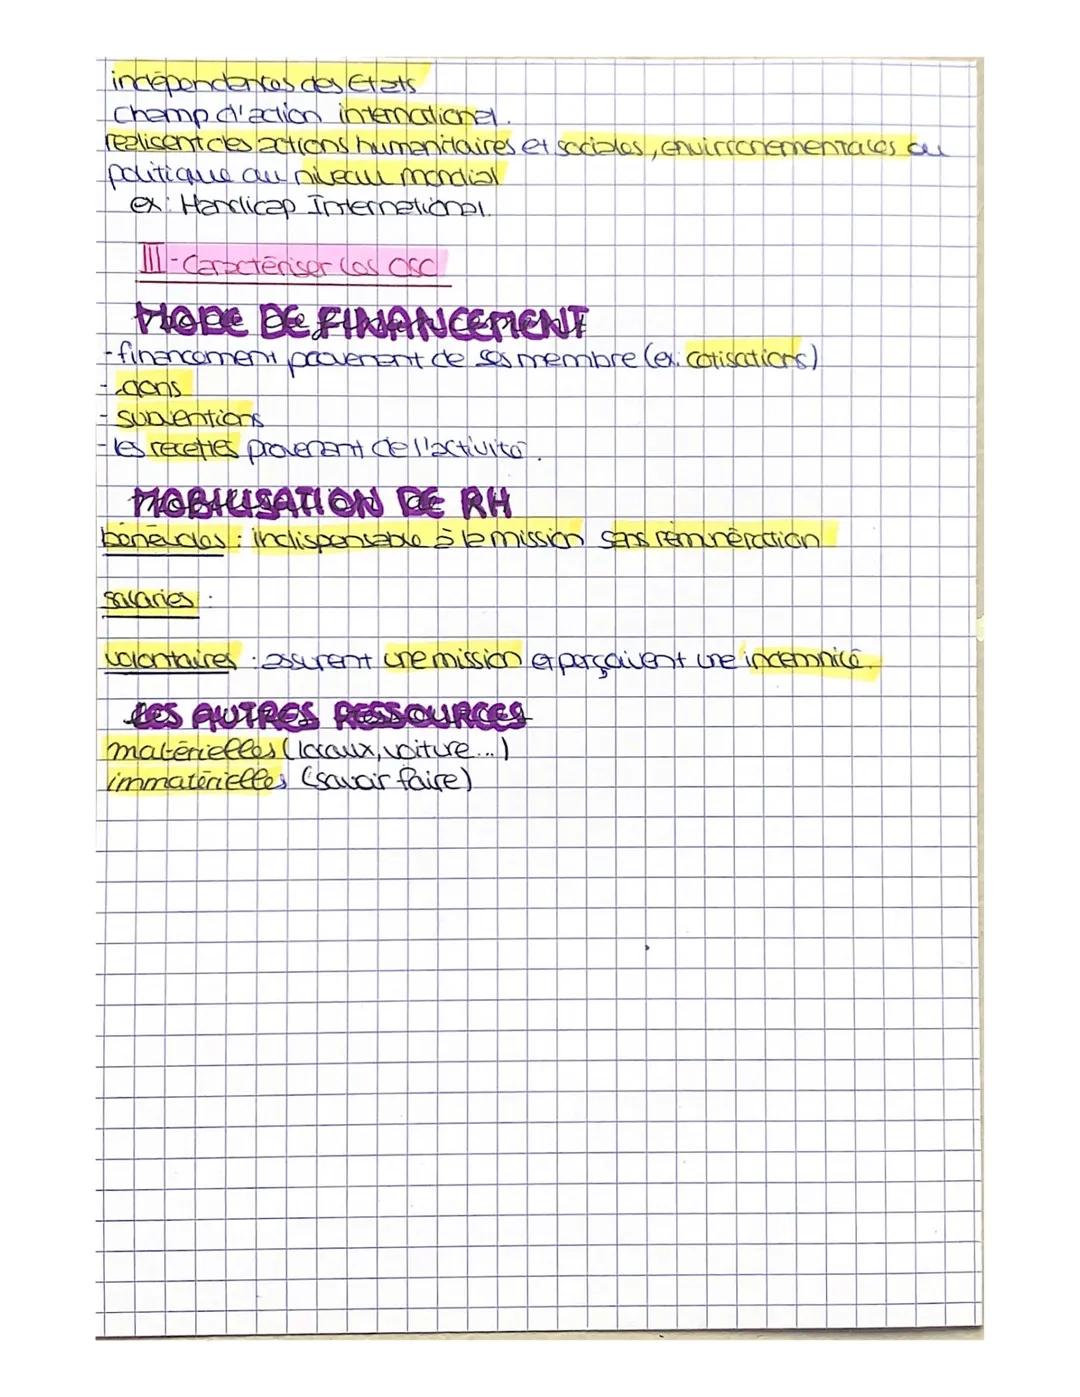 indépendantes des Etats
champ d'action international.
réalisent des actions humanitaires et sociales, environnementales ou
politique au niveau mondial
ex: Handicap International.
III - Caractériser les OSC
MODE DE FINANCEMENT
- financement provenant de ses membre (ex: cotisations)
- dons
- subventions
- les recettes provenant de l'activité.
MOBILISATION DE RH
bénévoles : indispensable à la mission sans rémunération
salariés :
volontaires : assurent une mission et perçoivent une indemnité.
LES AUTRES RESSOURCES
matérielles (locaux, voiture...)
immatérielles (savoir faire)